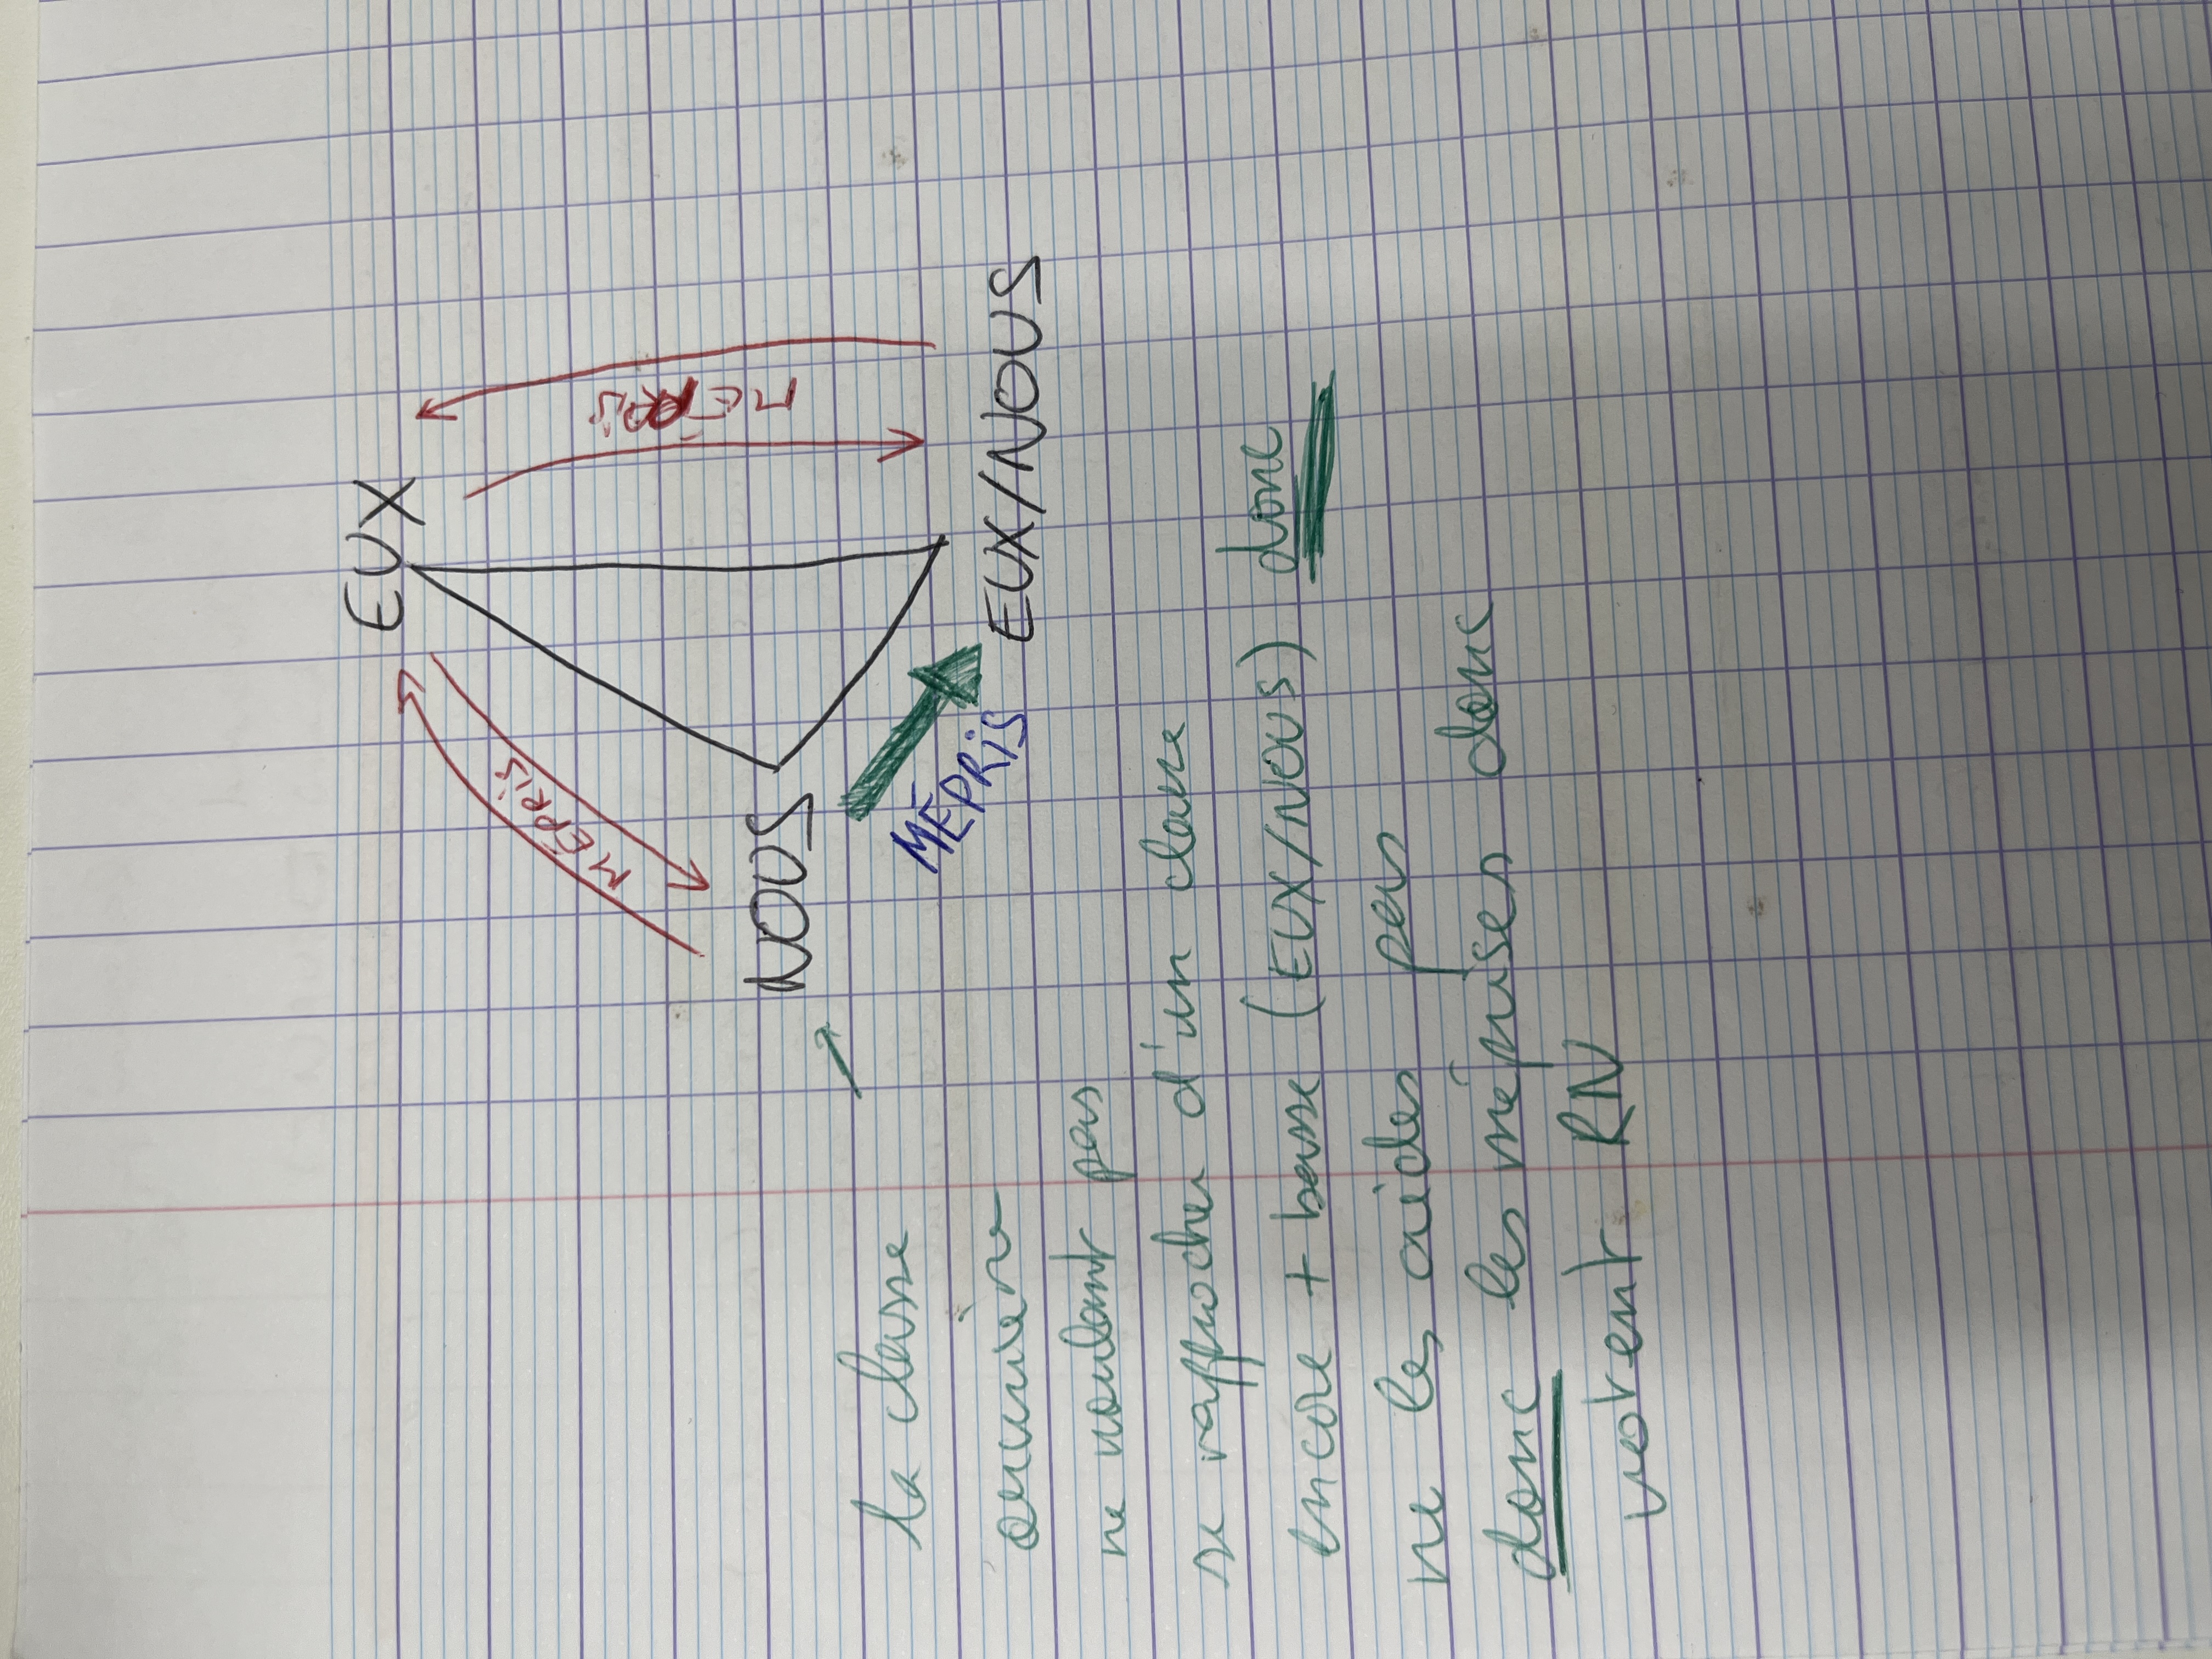 EUX
MÉPRIS
MÉPRIS
NOUS
MÉPRIS
EUX/NOUS
la classe
ouvrière
ne voulant pas
se rapprocher d'un classe
encore + basse (EUX/NOUS) donc
ne les aides pas
donc les méprises donc
votent RN